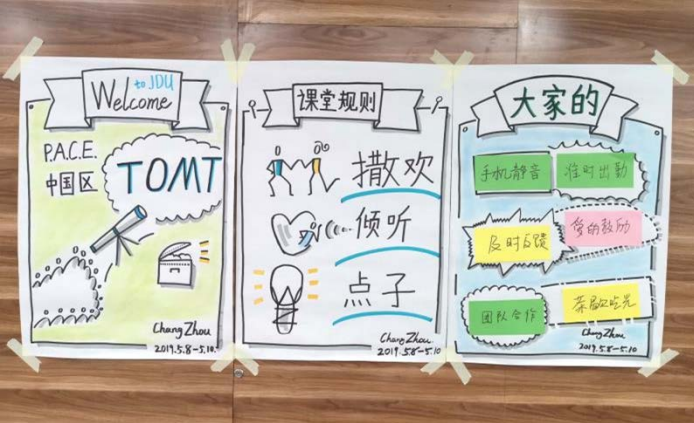 to JDU
Welcome
P.A.C.E.
中国区
TOMT
ChangZhou
2019.5.8-5.10.
课堂规则
撒欢
倾听
点子
ChangZhou
2019.5.8-5.10
大家的
手机静音
准时出勤
及时反馈
多的鼓励
团队合作
茶歇吃完
ChangZhou
2019.5.8-5.10